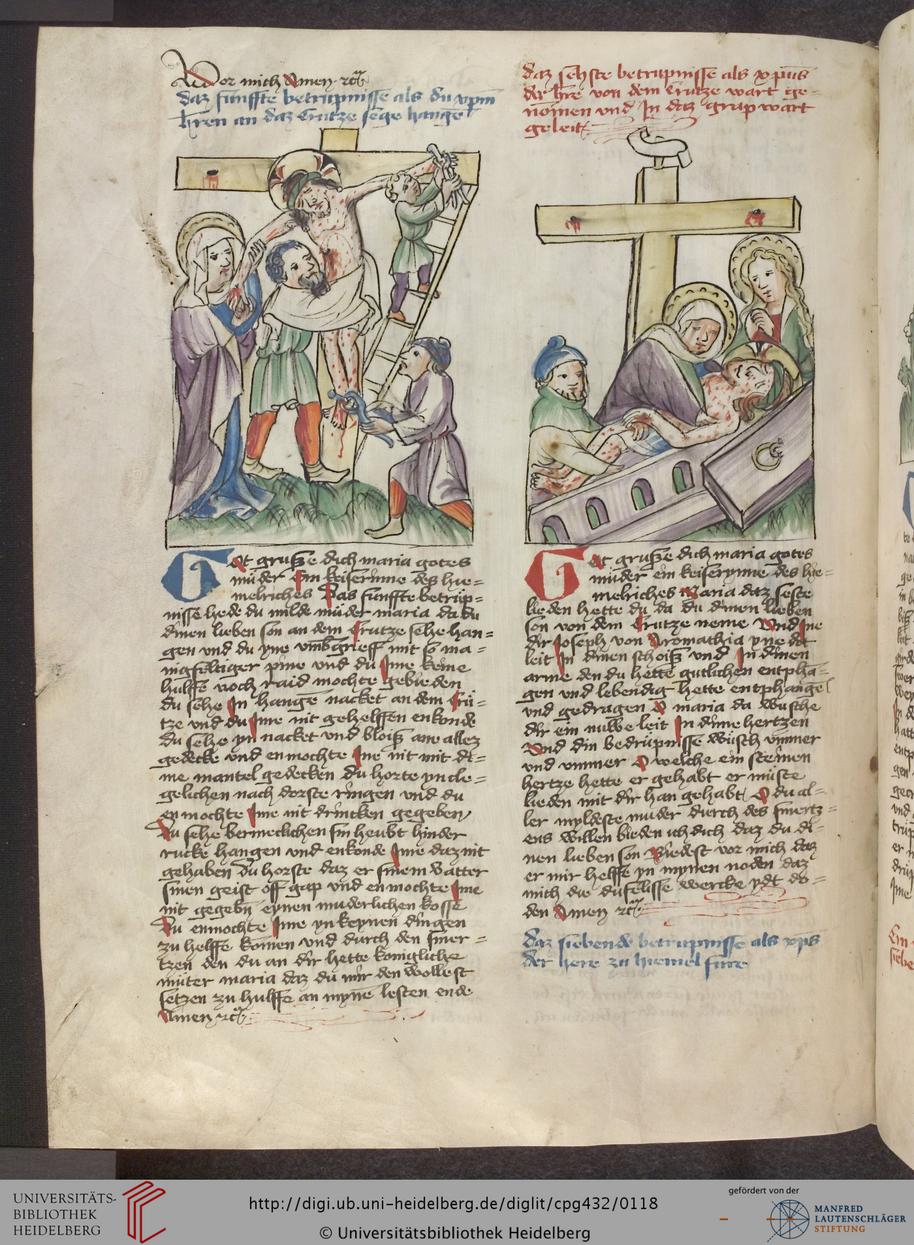 vor mich Amen etc
daz funffte betrupnisse als du xpm
hren an daz Crutze sege hange
Got grusze dich maria gotes
muder Ein keiserinne des hie=
melriches Das funffte betrüp=
nisse hede du milde muder maria da du
dinen lieben son an dem Crutze sehe han=
gen vnd du yne vmbgrieff mit so ma=
nigfaltiger pine vnd du Ime keine
hulffe noch raid mochte gebieden
du sehe In hange nacket an dem Crü=
tze vnd du Ime nit gehelffen enkonde
Du sehe yn nacket vnd bloisz ane allez
gedecke vnd en mochte Ine nit mit di=
me mantel gedecken du horte yn cle=
gelichen nach dorste ringen vnd du
en mochte Ime nit drincken gegeben
Du sehe bermeclichen sin heubt hinder
rucke hangen vnd enkonde Ime daz nit
gehaben Du horste daz er sinem vatter
sinen geist off gap vnd en mochte Ime
nit gegeben eynen muderlichen kosse
Du enmochte Ime yn keynen dingen
zu helffe komen vnd durch den smer=
tzen den du an dir hette konigliche
muter maria daz du mir den wollest
setzen zu hulffe an myne lesten ende
Amen etc
daz sehste betrupnisse als xpus
der hre von dem Crutze wart ge=
nomen vnd In daz grap wart
geleit
Got grusze dich maria gotes
muder ein keiserynne des hie=
melriches Maria daz seste
lieden hette du da du dinen lieben
son von dem Crutze neme Vnd Ine
dir Joseph von Aromathia yne dot
leit In dinen schoisz vnd In dinen
arme den du hette gutlichen entpha=
gen vnd lebendig hette entphange
vnd gedragen O maria da wusche
dir ein nuwe leit In dime hertzen
Vnd din bedrupnisse wusch vmmer
vnd vmmer O welche ein steinen
hertze hette er gehabt er muste
lieden mit dir han gehabt O du al=
ler myldeste muder durch des smertz=
ens willen bieden ich dich daz du di=
nen lieben son Biedest vor mich daz
er mir helffe yn mynen noden daz
mich die dufelisse wercke ydt do=
den Amen etc
daz siebende betrupnisse als xps
der here zu hiemel fure
UNIVERSITÄTS-
BIBLIOTHEK
HEIDELBERG
http://digi.ub.uni-heidelberg.de/diglit/cpg432/0118
© Universitätsbibliothek Heidelberg
gefördert von der
MANFRED
LAUTENSCHLÄGER
STIFTUNG